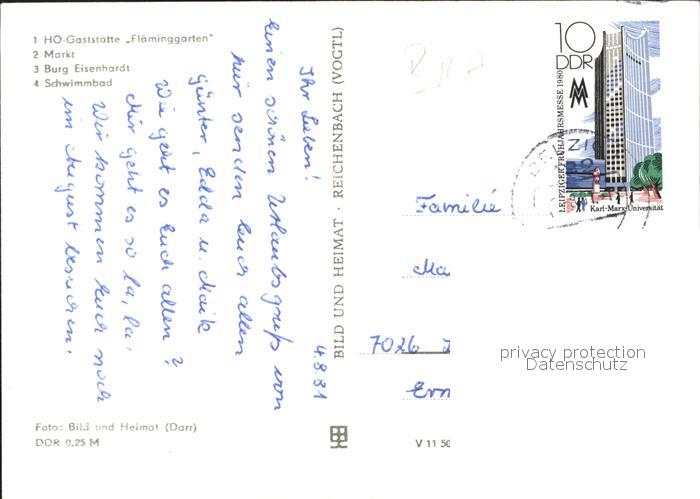 1 HO-Gaststätte „Fläminggarten"
2 Markt
3 Burg Eisenhardt
4 Schwimmbad
4.8.81
Ihr Lieben!
einen schönen Urlaubsgruß von
hier senden Euch allen
Günter, Edda u. Maik
Wie geht es Euch allen?
Mir geht es so la, la.
Wir kommen Euch noch
im August besuchen.
Foto: Bild und Heimat (Darr)
DDR 0,25 M
BILD UND HEIMAT · REICHENBACH (VOGTL)
V 11 50
10
DDR
MM
LEIPZIGER FRÜHJAHRSMESSE 1980
Karl-Marx-Universität
Familie
Ma
7026
Ern
privacy protection
Datenschutz